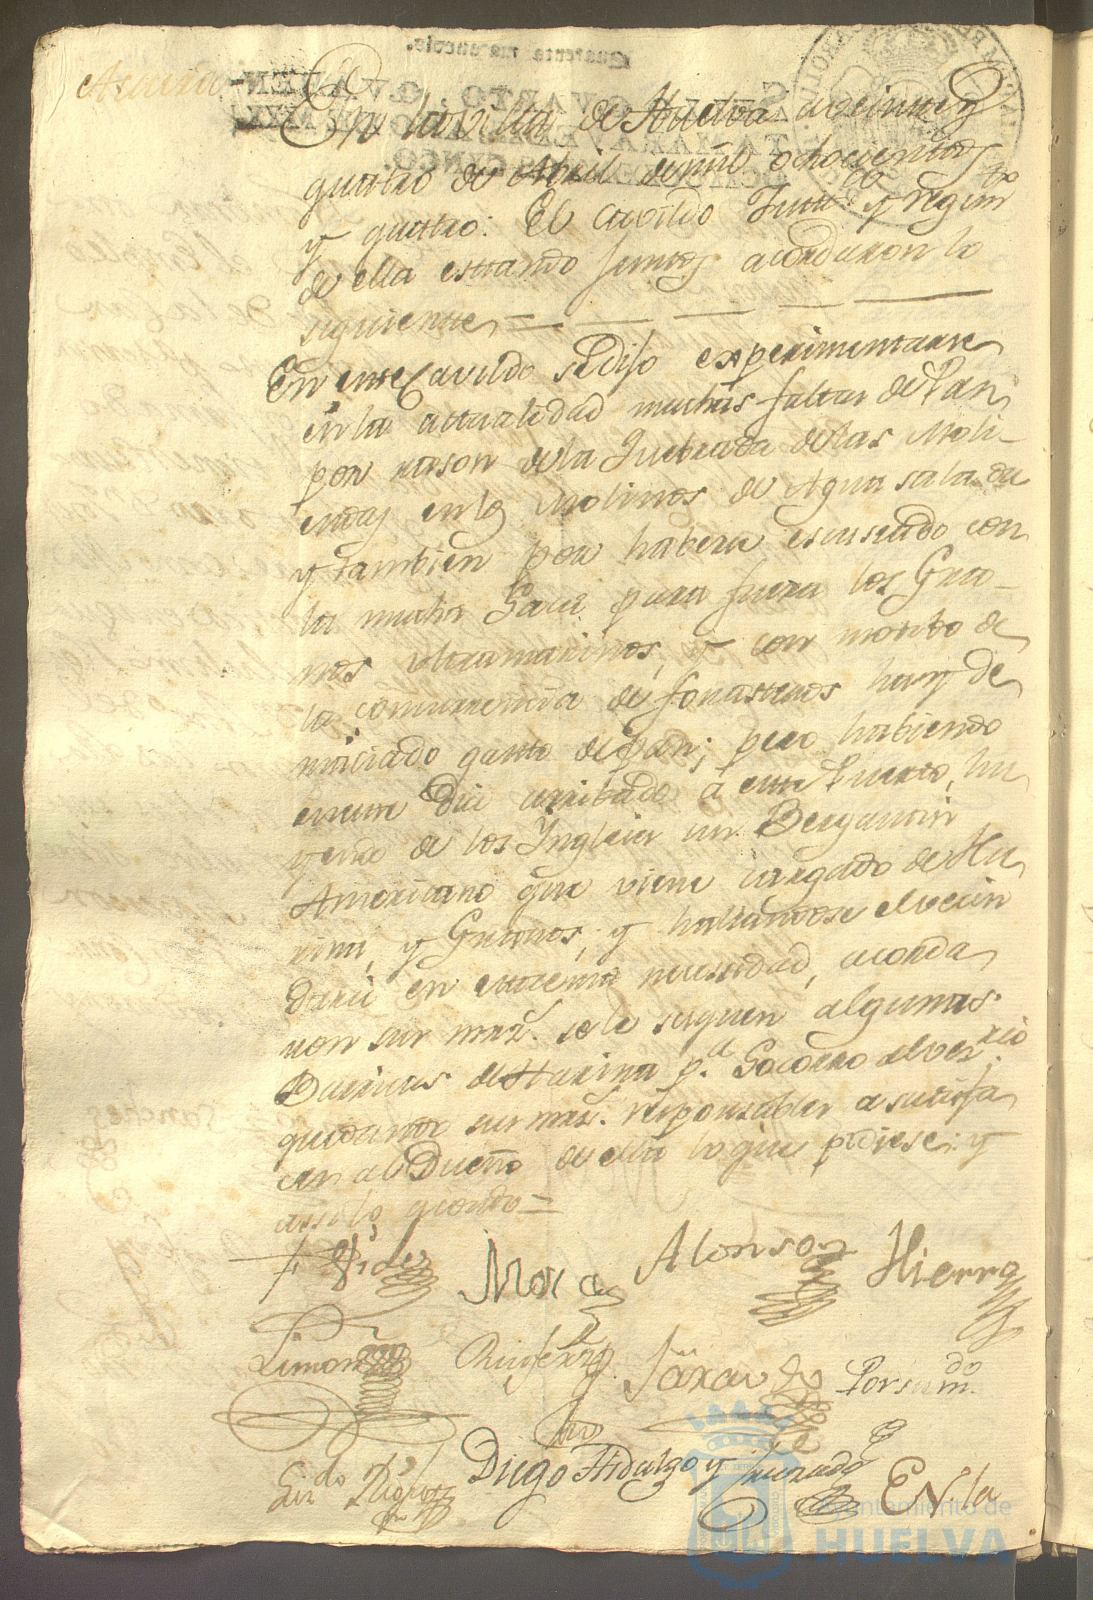 Acuerdo
En la villa de Huelva a veinte y
quatro de Abril de mil ochocientos
y quatro: El Cavildo Justa. y regimto
de ella estando juntos acordaron lo
siguiente =
En este Cavildo se Dijo experimentarse
en la actualidad muchas faltas de Pan
por rason de la Quebrada de las Moli-
endas en los Molinos de Agua salada
y tambien por haberse escaseado con
la mucha Saca para fuera los Gra-
nos ultramarinos, y con motivo de
la concurrencia de forasteros hay de
maciado gasto de Pan; pero habiendo
en este Dia arribado á este Puerto, hu
yendo de los Ingleses un Bergantin
Americano que viene cargado de Ha
rina, y Granos; y hallandose el vecin
dario en extrema necesidad, acorda
ron sus mrzs. se le saquen algunas
Barricas de Harina pa. Socorro del vecinrio
quedando sus mrzs. responsables a satisfa
cer al Dueño de ella lo que pidiese: y
assi lo acordo =
Mora Alonso Hierro
Limon
Diego Hidalgo y Jurado
En la
Quarenta maravedis.
Ayuntamiento de
HUELVA